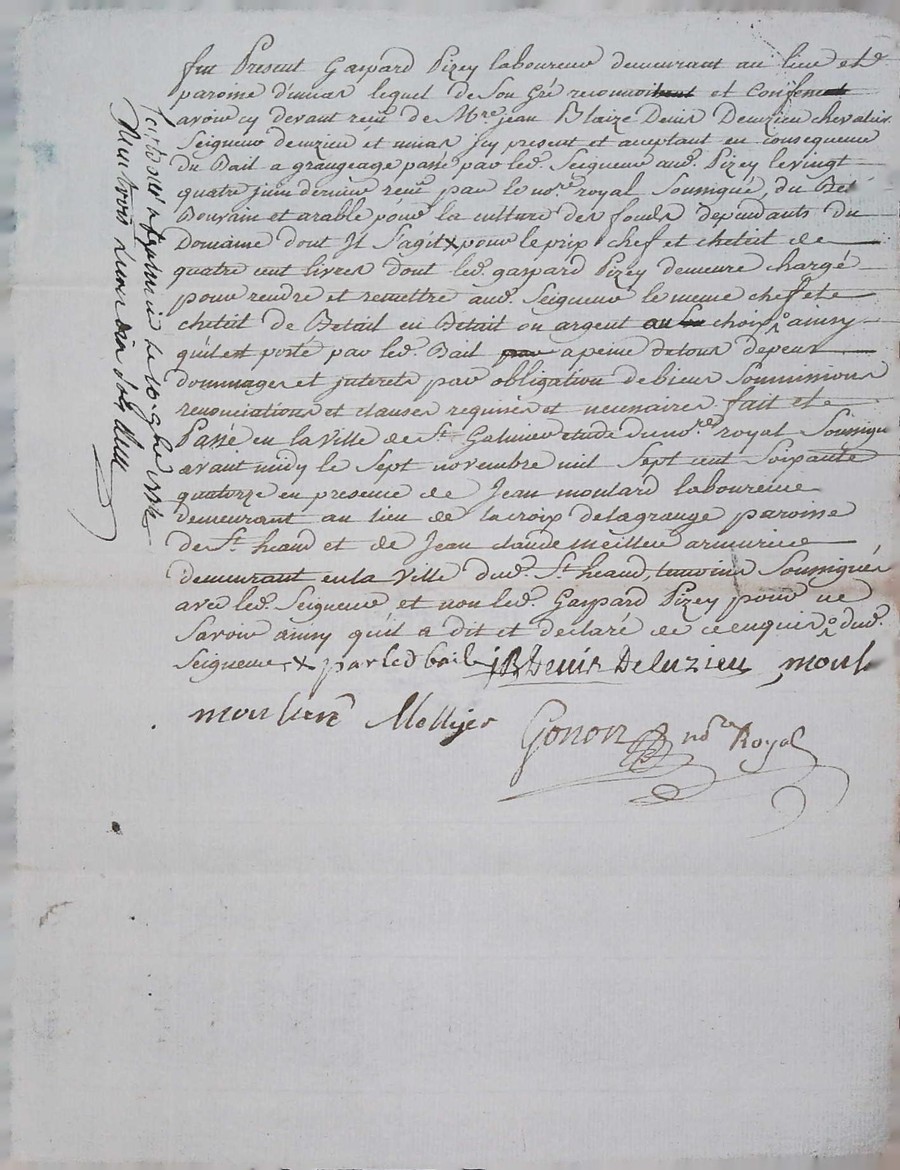 fut Present Gaspard Pizey laboureur demeurant au lieu et
paroisse d'unias lequel de Son Gré reconnoit et Confesse
avoir cy devant reçu de Mre jean Blaize Denis Deluzieu chevalier
Seigneur deluzieu et unias jcy present et aceptant en consequence
du Bail a grangeage passé par led. Seigneur aud. Pizey le vingt
quatre juin dernier reçu par le nore royal Soussigné, du Betail
Bouvain et arable pour la culture des fonds dependants du
Domaine dont Jl S'agit x pour le prix chef et chetail de
quatre cent livres dont led. gaspard Pizey demeure chargé
pour rendre et remettre aud. Seigneur le meme chef et
chetail de Betail en Betail ou argent au choix ainsy
qu'il est porté par led. Bail a peine de tous depens
dommages et jnterets par obligation de biens Soumissions
renonciations et clauses requises et necessaires fait et
Passé en la ville de St. Galmier etude du nore royal Soussigné
avant midy le Sept novembre mil Sept cent Soixante
quatorze en presence de Jean moulard laboureur
demeurant au lieu de lacroix delagrange paroisse
de St. heand et de Jean claude meillier armurier
demeurant en la ville dud. St. heand, temoins Soussignés
avec led. Seigneur, et non led. Gaspard Pizey pour ne
Savoir ainsy qu'il a dit et declaré de ce enquis o dud.
Seigneur x par led bail jB Denis Deluzieu moul
Mellier
Gonon nore Royal